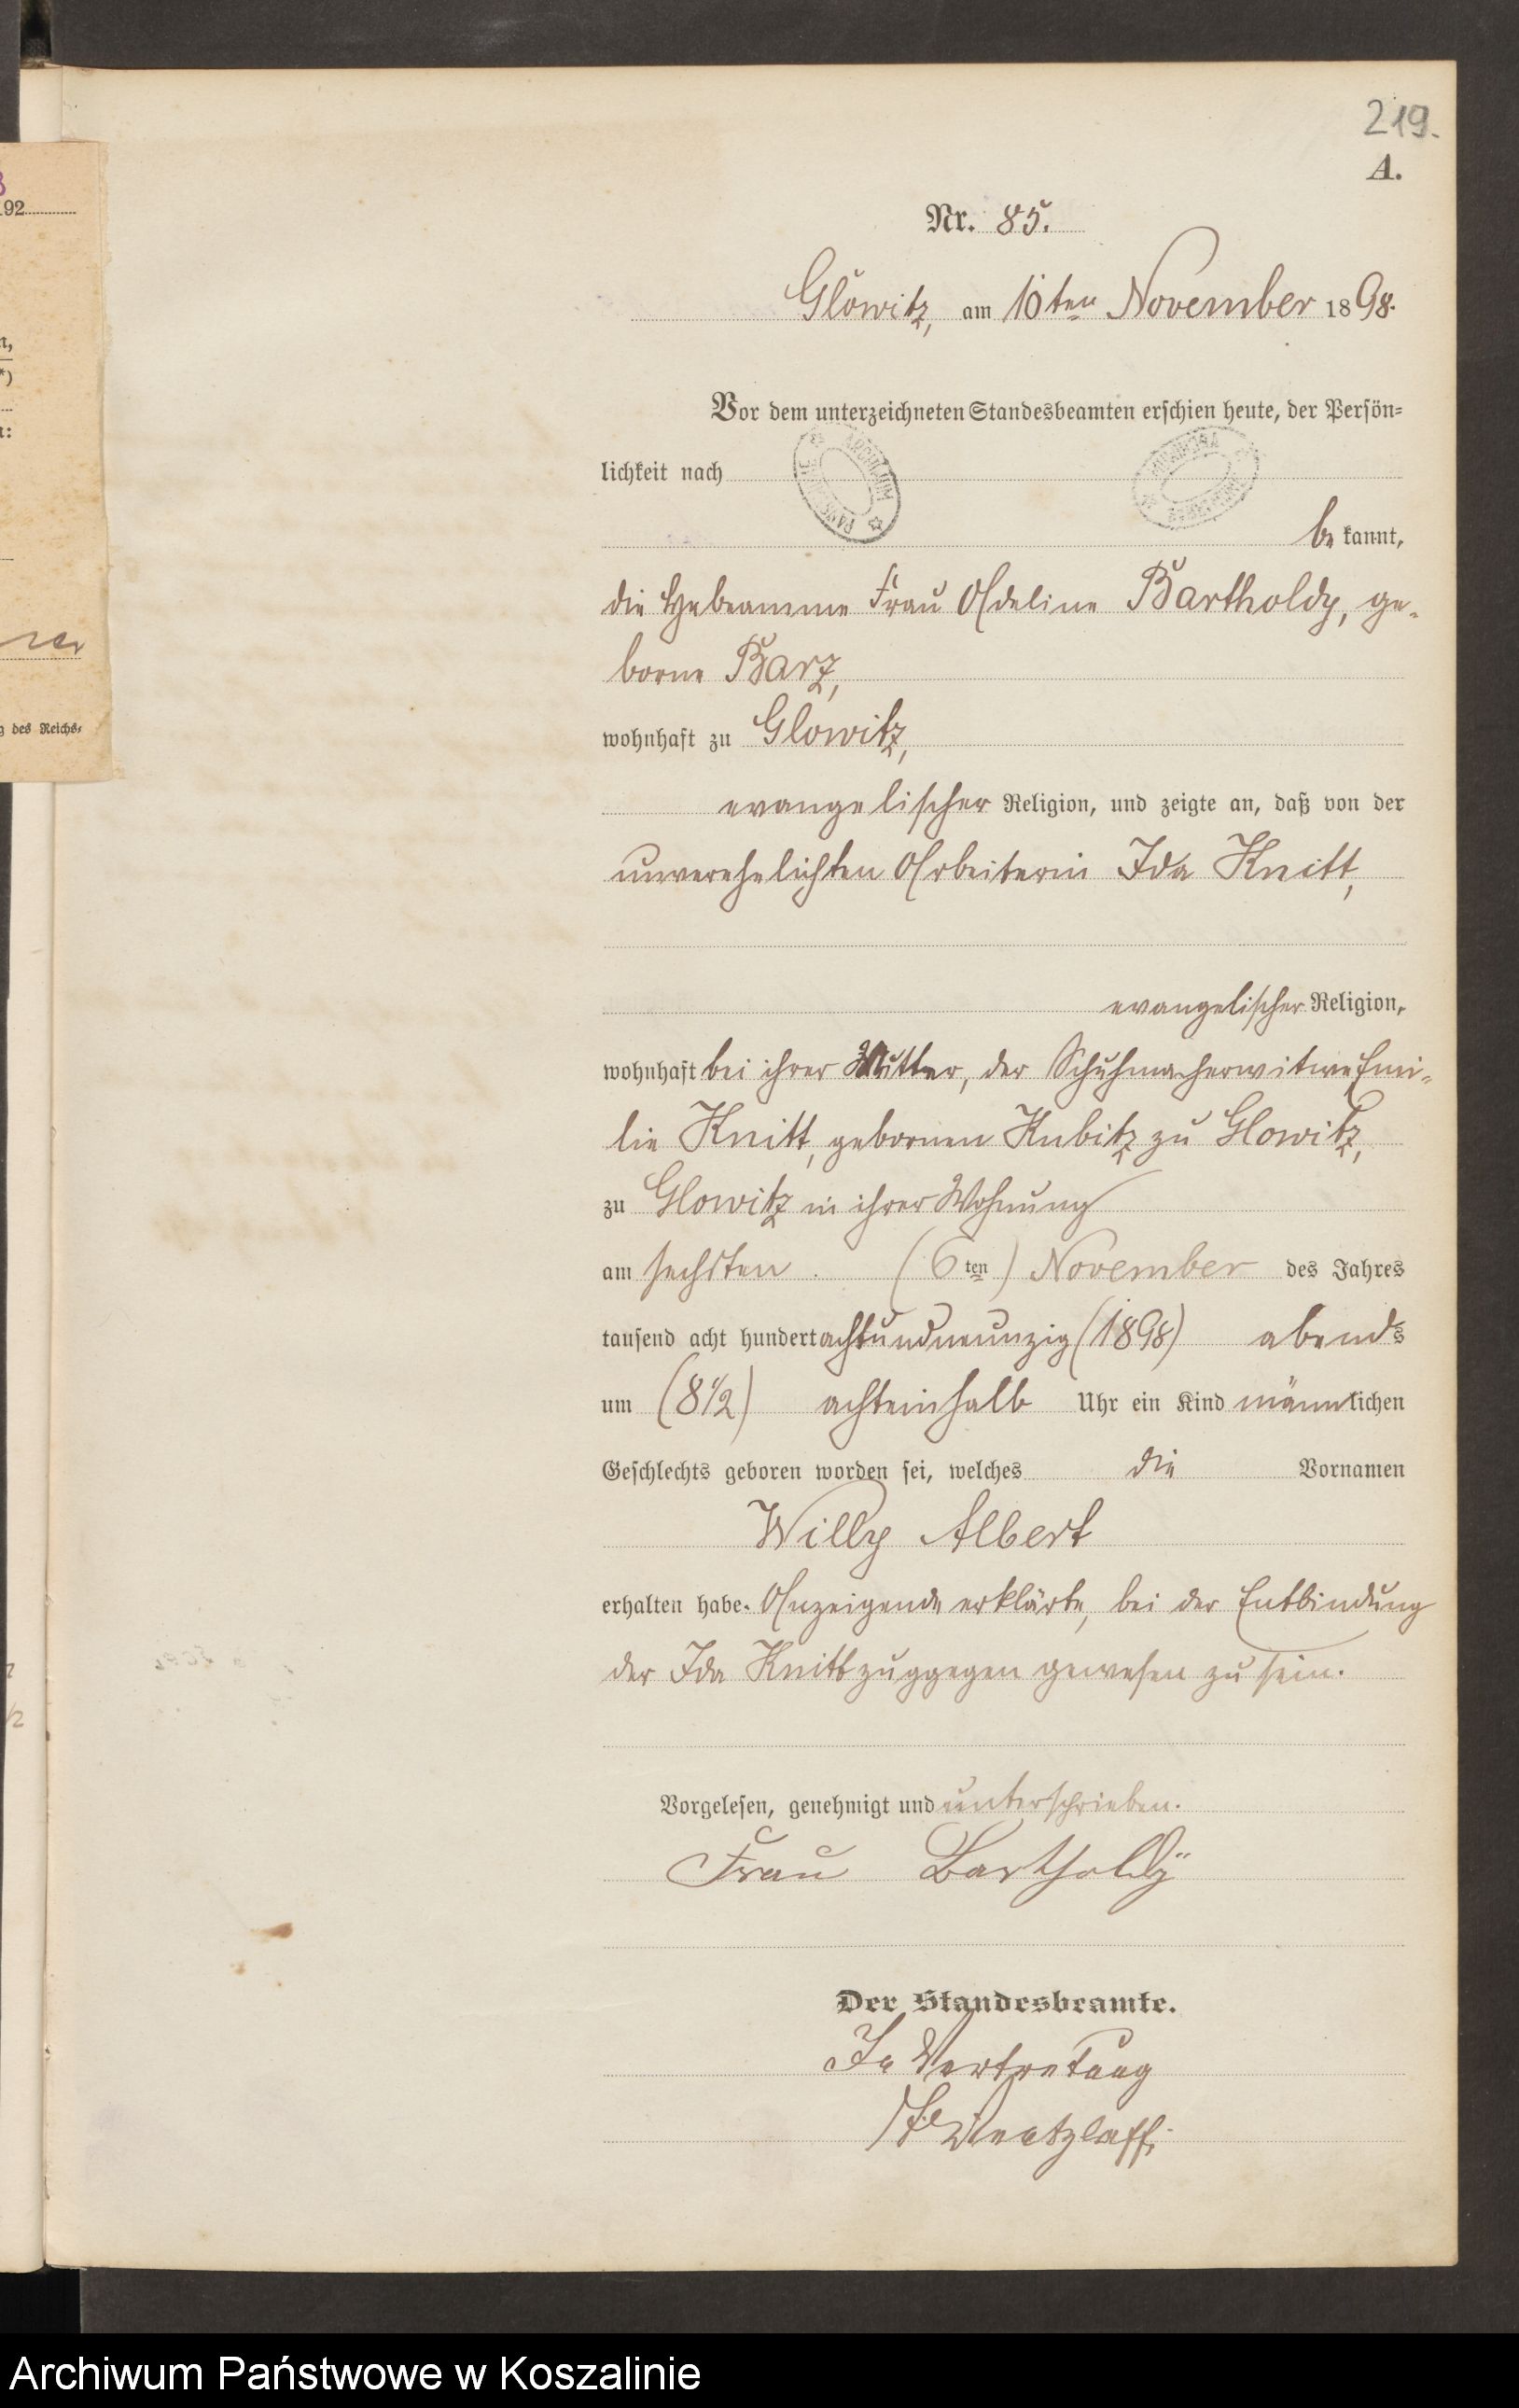 219.
A.
Nr. 85.
Glowitz, am 10ten November 1898.
Vor dem unterzeichneten Standesbeamten erschien heute, der Persön=
lichkeit nach
be kannt,
die Hebeamme Frau Adeline Bartholdy, ge-
borne Barz,
wohnhaft zu Glowitz,
evangelischer Religion, und zeigte an, daß von der
unverehelichten Arbeiterin Ida Knitt,
evangelischer Religion,
wohnhaft bei ihrer Mutter, der Schuhmacherwitwe Emi-
lie Knitt, gebornen Kubitz zu Glowitz,
zu Glowitz in ihrer Wohnung
am sechsten (6ten) November des Jahres
tausend acht hundert achtundneunzig (1898) abends
um (8½) achteinhalb Uhr ein Kind männlichen
Geschlechts geboren worden sei, welches die Vornamen
Willy Albert
erhalten habe. Anzeigende erklärte, bei der Entbindung
der Ida Knitt zuggegen gewesen zu sein.
Vorgelesen, genehmigt und unterschrieben.
Frau Bartholdÿ
Der Standesbeamte.
In Vertretung
ARCHIWUM
92
n,
*)
g des Reichs=
Archiwum Państwowe w Koszalinie